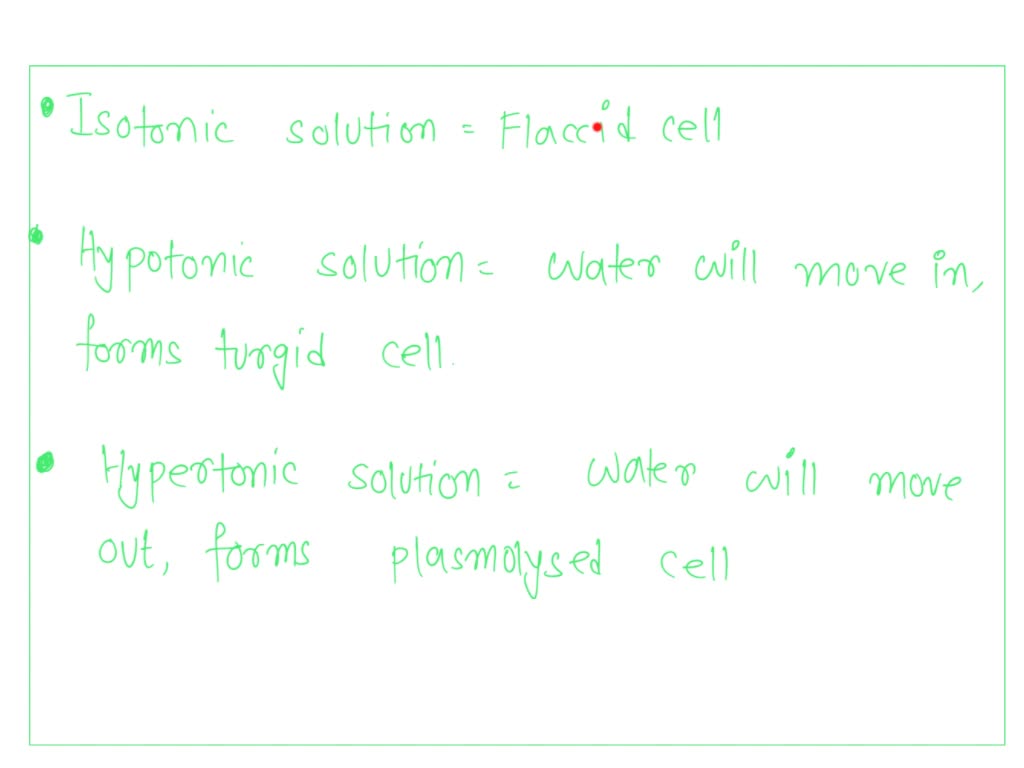 • Isotonic solution = Flaccid cell
• Hypotonic solution = water will move in,
forms turgid cell.
• Hypertonic solution = water will move
out, forms plasmolysed cell